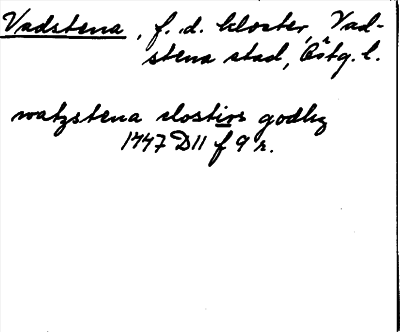 Vadstena, f. d. kloster, Vad-
stena stad, Östg. l.
watzstena clostirs godhz
1447 D11 f 9 r.